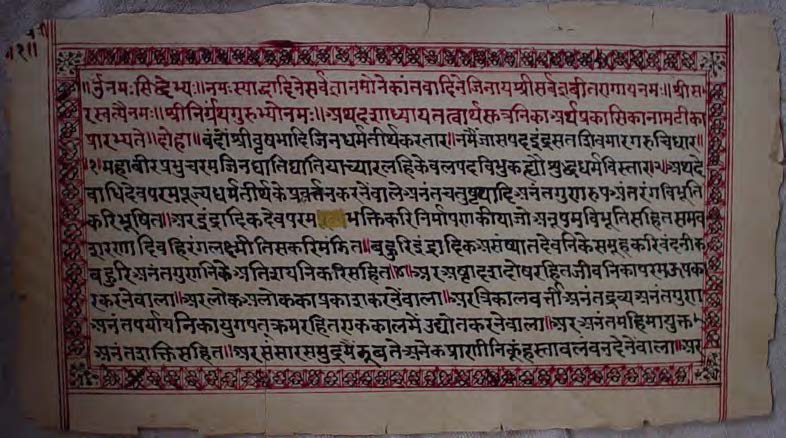 ॥र्नुनमःसिद्धेभ्यः॥नमःस्याद्वादिनेसर्वज्ञानमोनेकांतवादिनेजिनायश्रीसर्वज्ञवीतरागायनमः॥श्रीस
रस्वत्यैनमः॥श्रीनिर्ग्रंथगुरुभ्योनमः॥अथदशाध्यायतत्वार्थसूत्रवचनिकाअर्थप्रकासिकानामटीका
प्रारभ्यते॥दोहा॥बंदौंश्रीवृषभादिजिनधर्मतीर्थकरतार॥नमैंजासपदइंद्रसतशिवमारगरुचिधार॥
१॥महाबीरप्रभुचरमजिनघातिघातियाच्यारलहिकेवलपदविभुकह्यौशुद्धधर्मविस्तार॥२॥अथदे
वाधिदेवपरमपूज्यधर्मतीर्थकेप्रवर्त्तनकरनेवालेअनंतचतुष्टयादिअनंतगुणरूपअंतरंगविभूति
करिभूषित॥अरइंद्रादिकदेवपरम भक्तिकरिनिर्मापणकीयाजोअनूपमविभूतिसहितसमव
शरणादिवहिरंगलक्ष्मीतिसकरिमंडित॥बहुरिइंद्रादिकअसंख्यातदेवनिकेसमूहकरिवंदनीक
बहुरिअनंतगुणनिकेअतिशयनिकरिसहित॥४॥अरअष्टादशदोषरहितजीवनिकापरमउपका
रकरनेवाला॥अरलोकअलोककाप्रकाशकरनेंवाला॥अरत्रिकालवर्त्तीअनंतद्रव्यअनंतगुण
अनंतपर्यायनिकायुगपतक्रमरहितएककालमेंउद्योतकरनेवाला॥अरअनंतमहिमायुक्त
अनंतशक्तिसहित॥अरसंसारसमुद्रमैंडूबतेअनेकप्राणीनिकूंहस्तावलंबनदेनेवाला॥अर